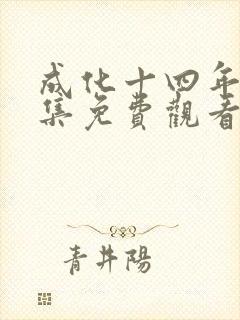 成化十四年
集免費觀看
青井陽